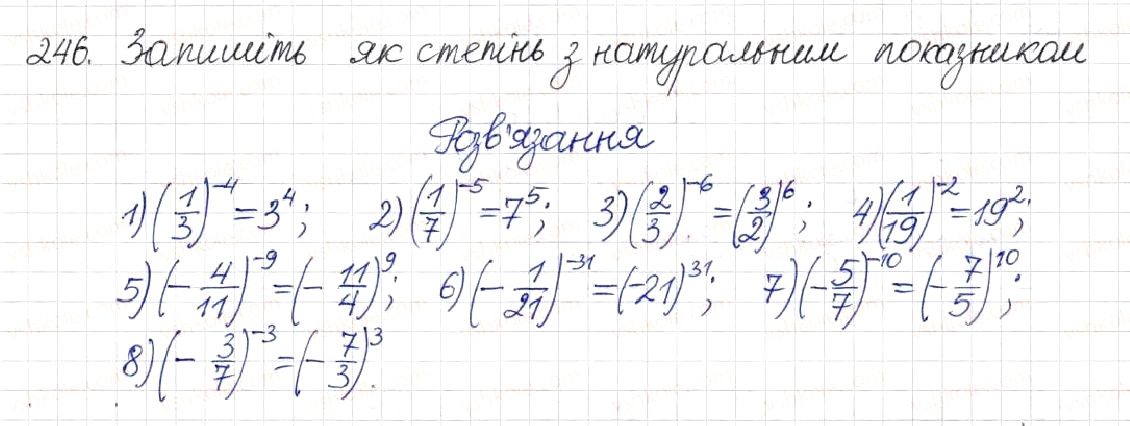 246. Запишіть як степінь з натуральним показником
Розв'язання
1) (1/3)^-4 = 3^4; 2) (1/7)^-5 = 7^5; 3) (2/3)^-6 = (3/2)^6; 4) (1/19)^-2 = 19^2;
5) (-4/11)^-9 = (-11/4)^9; 6) (-1/21)^-31 = (-21)^31; 7) (-5/7)^-10 = (-7/5)^10;
8) (-3/7)^-3 = (-7/3)^3.